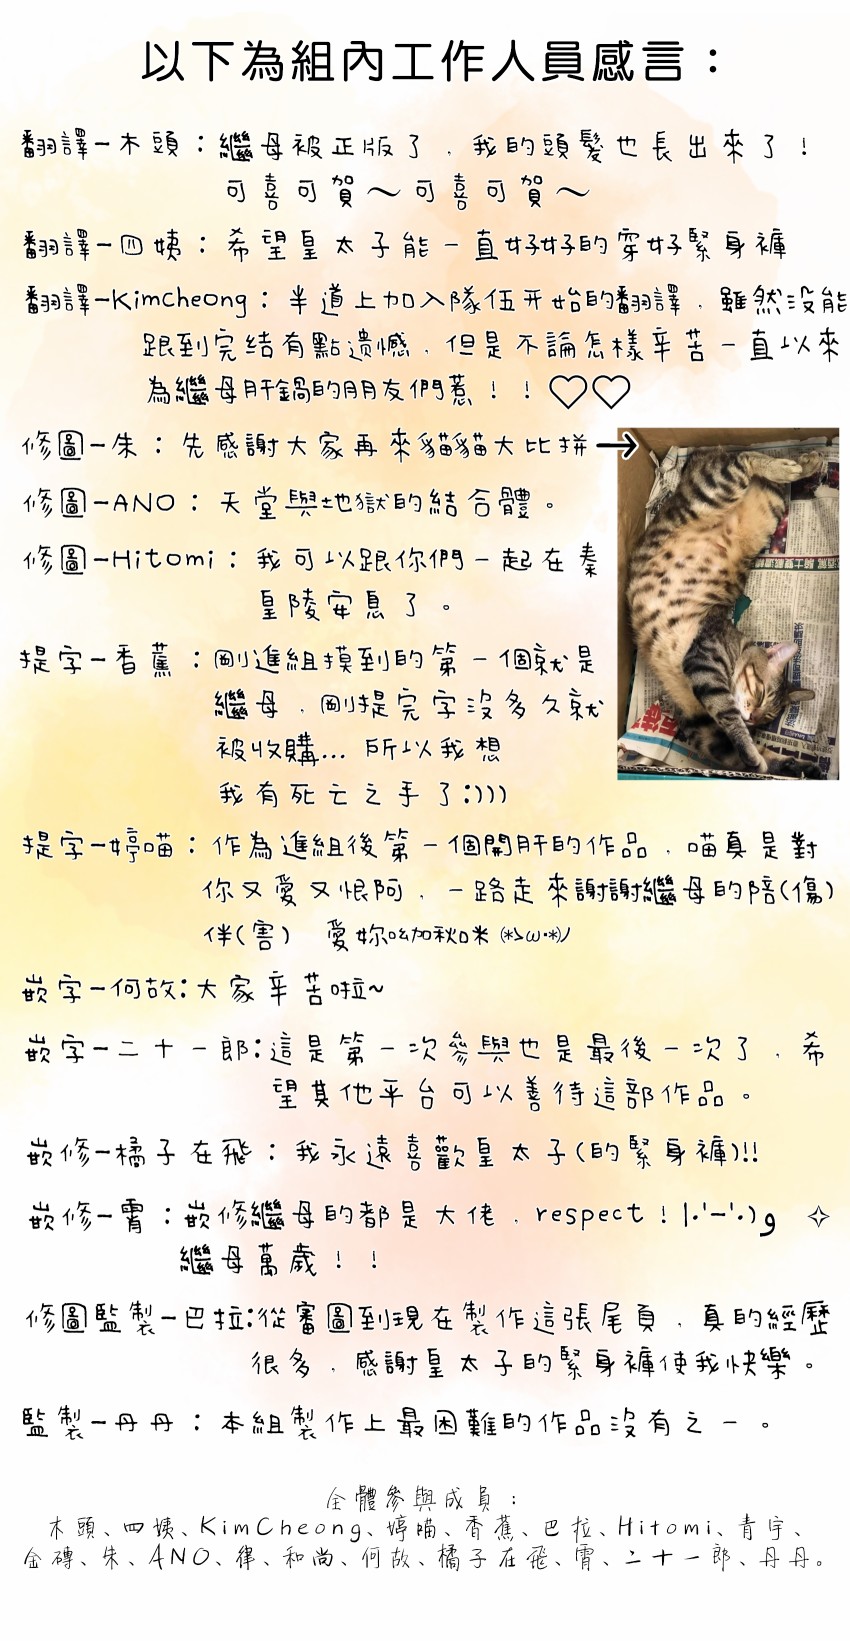 以下為組內工作人員感言：
翻譯－木頭：繼母被正版了，我的頭髮也長出來了！
可喜可賀～可喜可賀～
翻譯－四姨：希望皇太子能一直好好的穿好緊身褲
翻譯－Kimcheong：半道上加入隊伍开始的翻譯，雖然沒能
跟到完结有點遗憾，但是不論怎樣辛苦一直以來
為繼母肝鍋的朋友們惹！！♡♡
修圖－朱：先感謝大家再來貓貓大比拼→
修圖－ANO：天堂與地獄的結合體。
修圖－Hitomi：我可以跟你們一起在秦
皇陵安息了。
提字－香蕉：剛進組摸到的第一個就是
繼母，剛提完字沒多久就
被收購... 所以我想
我有死亡之手了:)))
提字－婷喵：作為進組後第一個開肝的作品，喵真是對
你又愛又恨阿，一路走來謝謝繼母的陪(傷)
伴(害) 愛妳呦加秋咪 (*>ω·*)ﾉ
嵌字－何故:大家辛苦啦~
嵌字－二十一郎:這是第一次參與也是最後一次了，希
望其他平台可以善待這部作品。
嵌修－橘子在飛：我永遠喜歡皇太子(的緊身褲)!!
嵌修－霄：嵌修繼母的都是大佬，respect！|·'-'·)و ✧
繼母萬歲！！
修圖監製－巴拉:從審圖到現在製作這張尾頁，真的經歷
很多，感謝皇太子的緊身褲使我快樂。
監製－丹丹：本組製作上最困難的作品沒有之一。
全體參與成員：
木頭、四姨、KimCheong、婷喵、香蕉、巴拉、Hitomi、青宇、
金磚、朱、ANO、律、和尚、何故、橘子在飛、霄、二十一郎、丹丹。